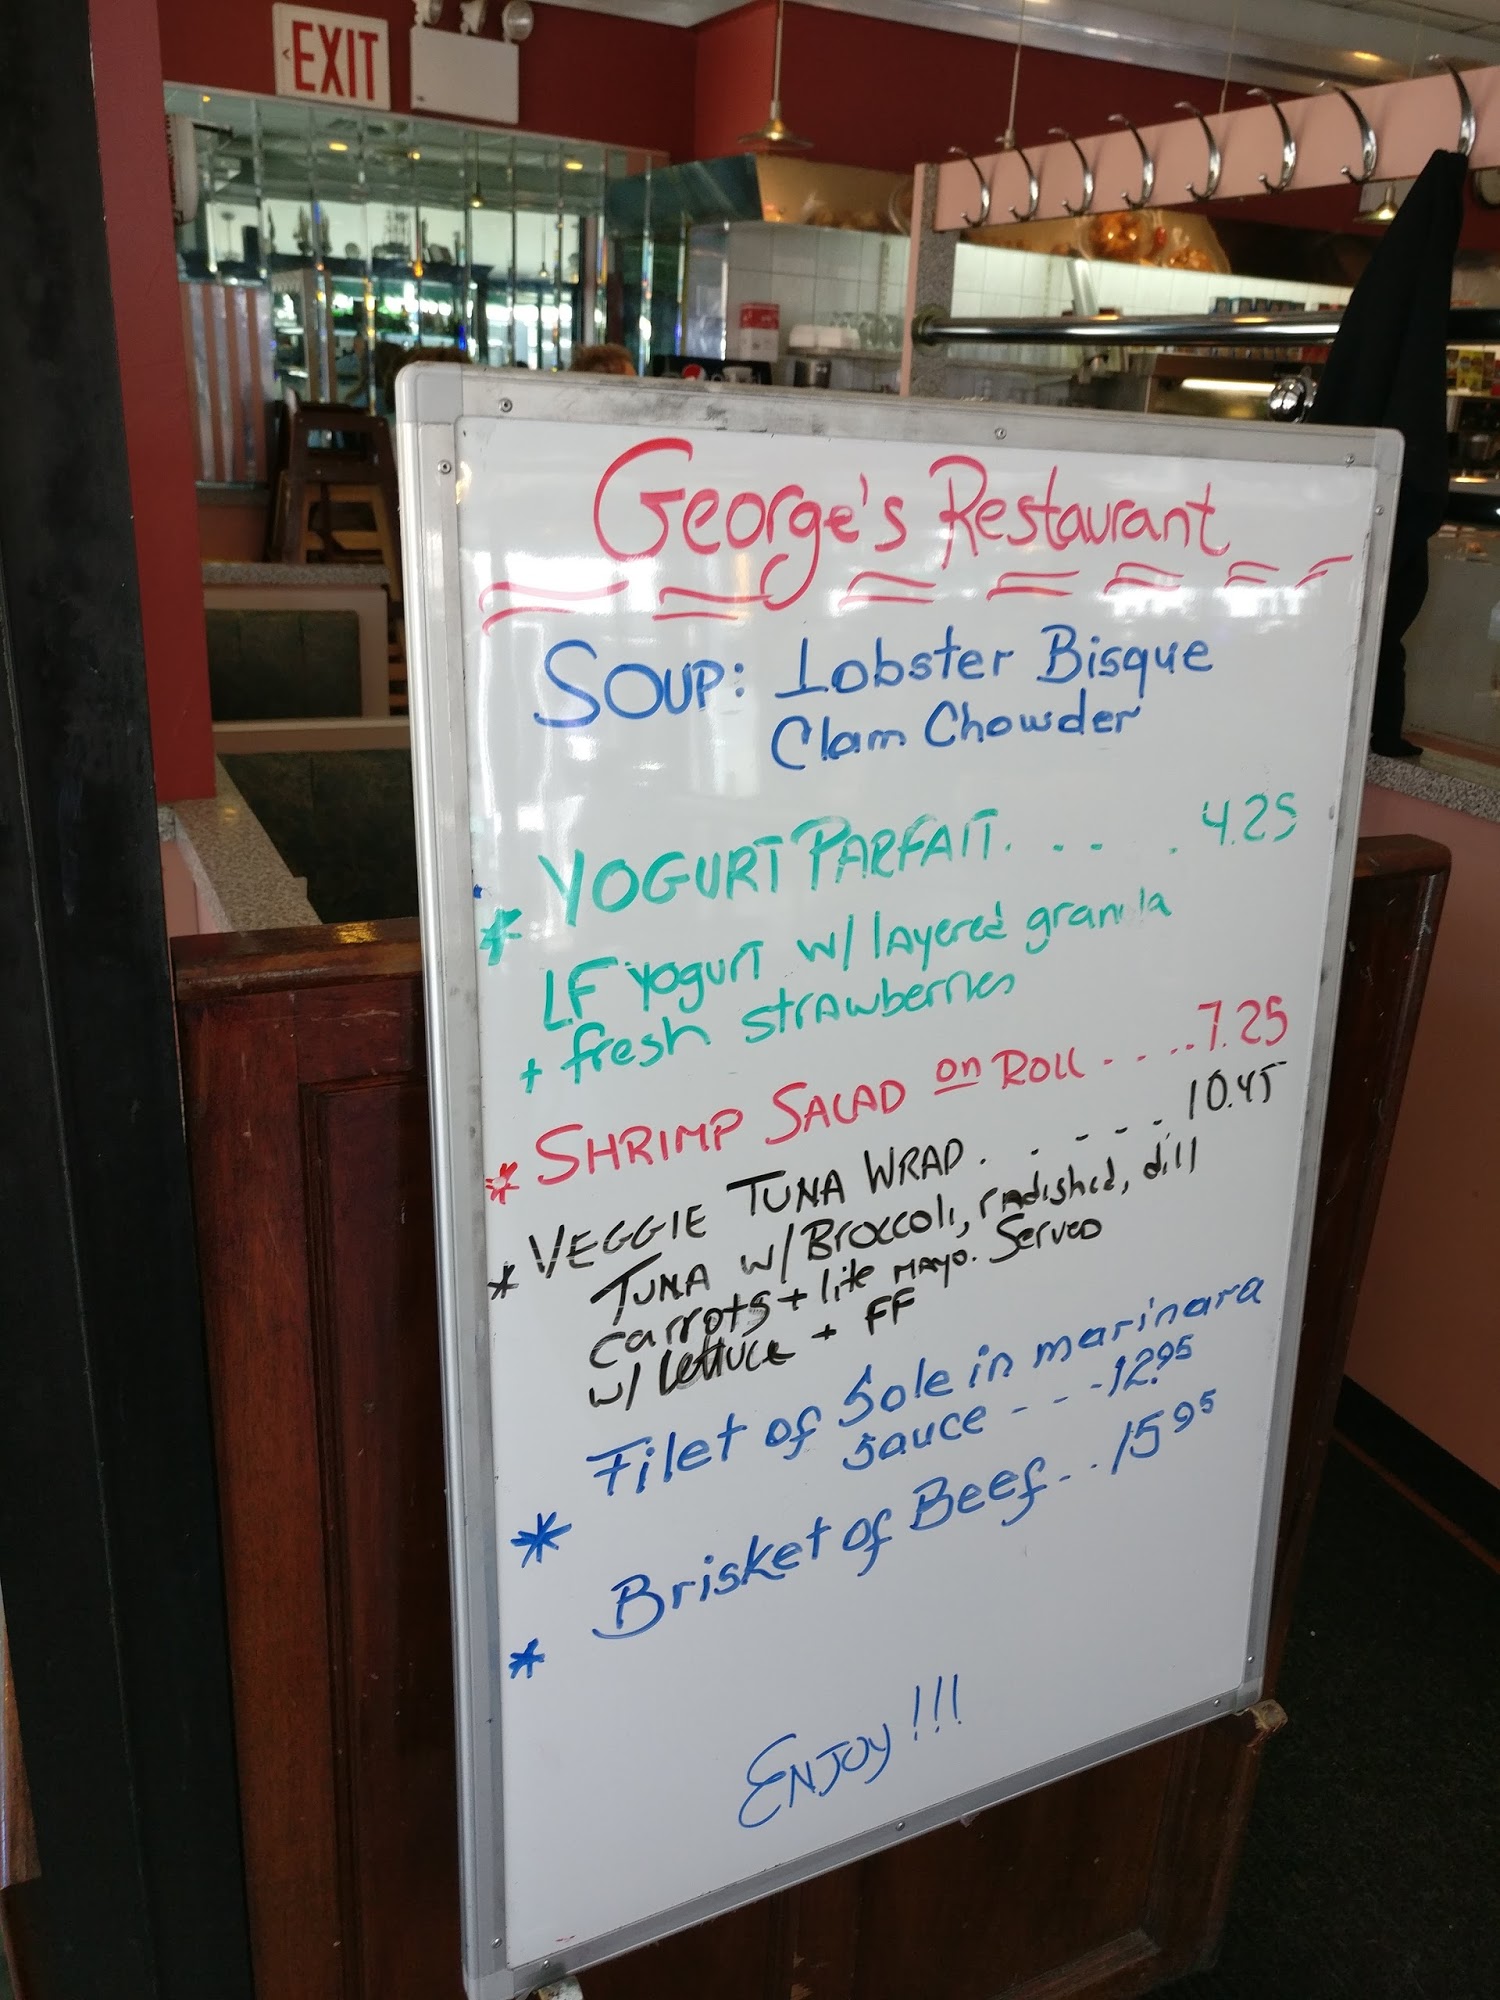 EXIT
George's Restaurant
SOUP: Lobster Bisque
Clam Chowder
* YOGURT PARFAIT. . . . . 4.25
LF yogurt w/ layered granola
+ fresh strawberries
* SHRIMP SALAD on ROLL . . . . . 7.25
* VEGGIE TUNA WRAP . . - - - . 10.45
TUNA w/ Broccoli, radished, dill
carrots + lite MAYO. Served
w/ lettuce + FF
* Filet of Sole in marinara
sauce - - - 12.95
* Brisket of Beef - . . 15.95
ENJOY!!!